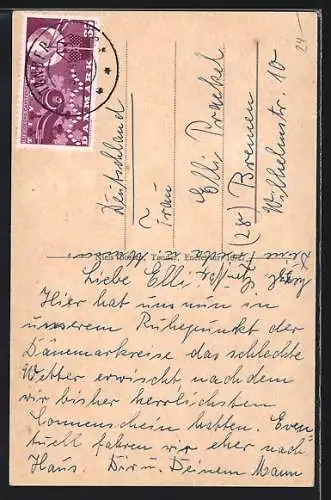 24-
TØNDER
DANMARK
Deutschland
Frau
Elli Prackel
(28) Bremen
Wilhelmstr. 10
Liebe Elli
Hier hat uns nun in
unserem Ruhepunkt der
Dänemarkreise das schlechte
Wetter erwischt, nachdem
wir bisher herrlichsten
Sonnenschein hatten. Even-
tuell fahren wir eher nach
Haus. Dir u. Deinem Mann